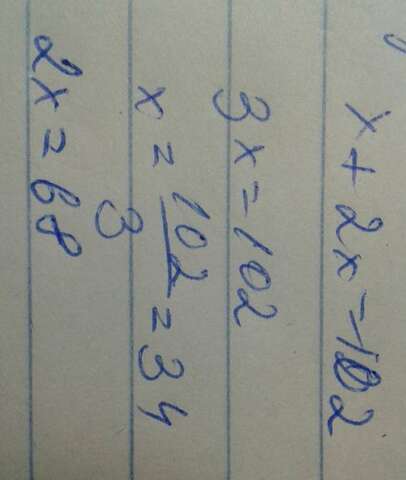 x + 2x = 102
3x = 102
x = 102/3 = 34
2x = 68